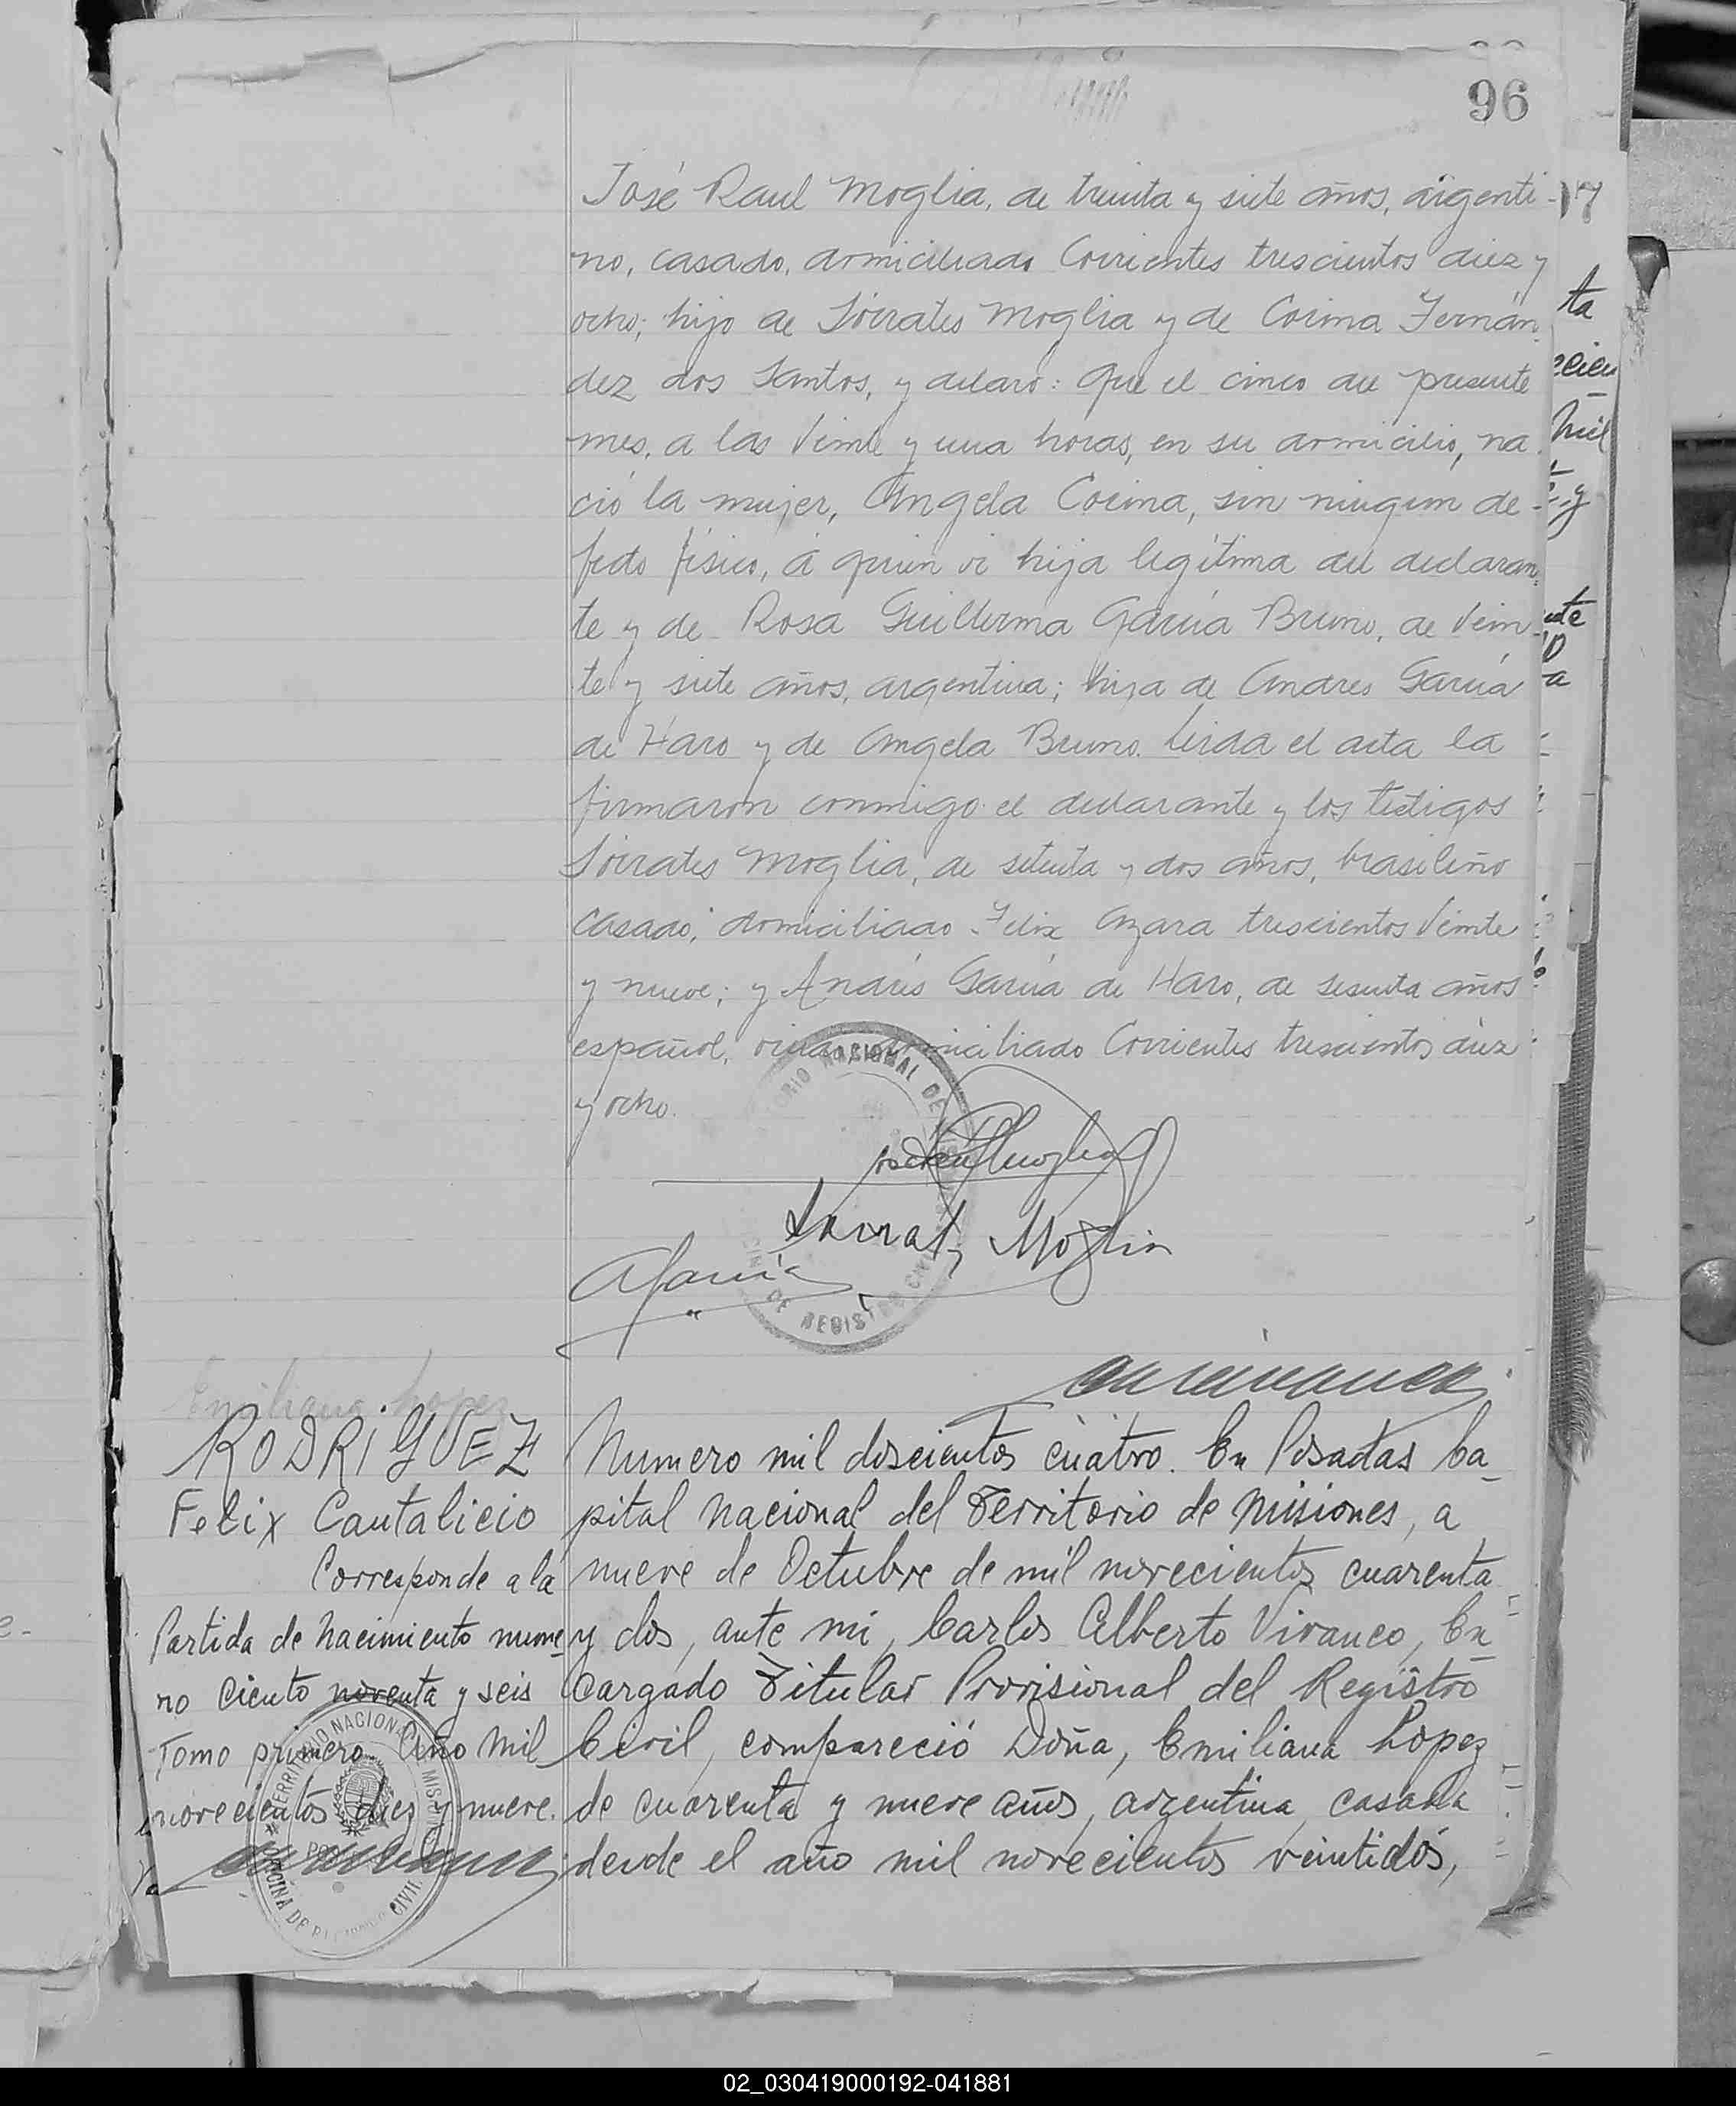 96
José Raul Moglia, de treinta y siete años, argenti-
no, casado, domiciliado Corrientes trescientos diez y
ocho; hijo de Sócrates Moglia y de Corina Fernán-
dez dos Santos, y declaró: Que el cinco del presente
mes, a las veinte y una horas, en su domicilio, na-
ció la mujer, Angela Corina, sin ningun de-
fecto físico, á quien vi hija legítima del declaran-
te y de Rosa Guillerma García Bruno, de vein-
te y siete años, argentina; hija de Andres García
de Haro y de Angela Bruno. Leída el acta la
firmaron conmigo el declarante y los testigos
Sócrates Moglia, de setenta y dos años, brasileño
casado, domiciliado Felix Azara trescientos veinte
y nueve; y Andrés García de Haro, de sesenta años
español, viudo, domiciliado Corrientes trescientos diez
y ocho.
Socrates Moglia
AGarcía
Emiliana Lopez
RODRIGUEZ
Felix Cantalicio
Corresponde a la
Partida de Nacimiento nume-
ro ciento noventa y seis
Tomo primero. Año mil
novecientos diez y nueve.
TERRITORIO NACIONAL DE MISIONES
OFICINA DE REGISTRO CIVIL
Numero mil doscientos cuatro. En Posadas Ca-
pital Nacional del Territorio de Misiones, a
nueve de Octubre de mil novecientos cuarenta
y dos, ante mi, Carlos Alberto Vivanco, En-
cargado Titular Provisional del Registro
Civil, compareció Doña, Emiliana Lopez
de cuarenta y nueve años, argentina, casada
desde el año mil novecientos veintidós,
02_030419000192-041881